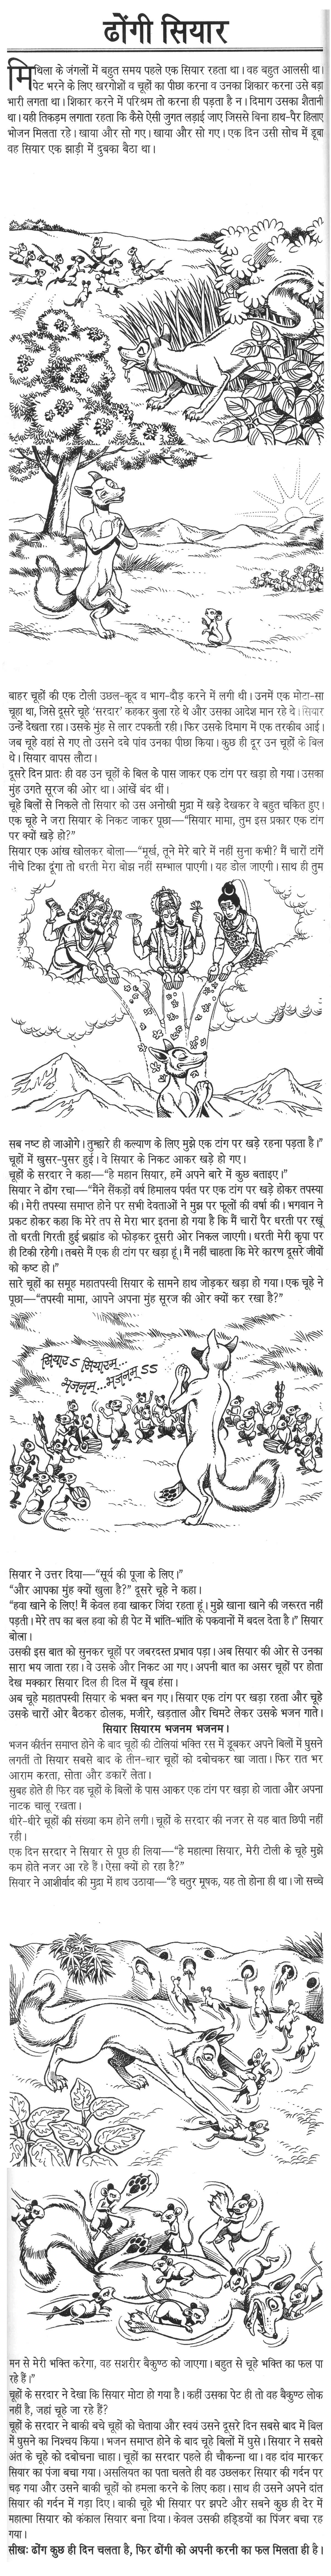 ढोंगी सियार
मिथिला के जंगलों में बहुत समय पहले एक सियार रहता था। वह बहुत आलसी था।
पेट भरने के लिए खरगोशों व चूहों का पीछा करना व उनका शिकार करना उसे बड़ा
भारी लगता था। शिकार करने में परिश्रम तो करना ही पड़ता है न। दिमाग उसका शैतानी
था। यही तिकड़म लगाता रहता कि कैसे ऐसी जुगत लड़ाई जाए जिससे बिना हाथ-पैर हिलाए
भोजन मिलता रहे। खाया और सो गए। खाया और सो गए। एक दिन उसी सोच में डूबा
वह सियार एक झाड़ी में दुबका बैठा था।
बाहर चूहों की एक टोली उछल-कूद व भाग-दौड़ करने में लगी थी। उनमें एक मोटा-सा
चूहा था, जिसे दूसरे चूहे 'सरदार' कहकर बुला रहे थे और उसका आदेश मान रहे थे। सियार
उन्हें देखता रहा। उसके मुंह से लार टपकती रही। फिर उसके दिमाग में एक तरकीब आई।
जब चूहे वहां से गए तो उसने दबे पांव उनका पीछा किया। कुछ ही दूर उन चूहों के बिल
थे। सियार वापस लौटा।
दूसरे दिन प्रातः ही वह उन चूहों के बिल के पास जाकर एक टांग पर खड़ा हो गया। उसका
मुंह उगते सूरज की ओर था। आंखें बंद थीं।
चूहे बिलों से निकले तो सियार को उस अनोखी मुद्रा में खड़े देखकर वे बहुत चकित हुए।
एक चूहे ने जरा सियार के निकट जाकर पूछा—"सियार मामा, तुम इस प्रकार एक टांग
पर क्यों खड़े हो?"
सियार एक आंख खोलकर बोला—"मूर्ख, तूने मेरे बारे में नहीं सुना कभी? मैं चारों टांगें
नीचे टिका दूंगा तो धरती मेरा बोझ नहीं सम्भाल पाएगी। यह डोल जाएगी। साथ ही तुम
सब नष्ट हो जाओगे। तुम्हारे ही कल्याण के लिए मुझे एक टांग पर खड़े रहना पड़ता है।"
चूहों में खुसर-पुसर हुई। वे सियार के निकट आकर खड़े हो गए।
चूहों के सरदार ने कहा—"हे महान सियार, हमें अपने बारे में कुछ बताइए।"
सियार ने ढोंग रचा—"मैंने सैंकड़ों वर्ष हिमालय पर्वत पर एक टांग पर खड़े होकर तपस्या
की। मेरी तपस्या समाप्त होने पर सभी देवताओं ने मुझ पर फूलों की वर्षा की। भगवान ने
प्रकट होकर कहा कि मेरे तप से मेरा भार इतना हो गया है कि मैं चारों पैर धरती पर रखूं
तो धरती गिरती हुई ब्रह्मांड को फोड़कर दूसरी ओर निकल जाएगी। धरती मेरी कृपा पर
ही टिकी रहेगी। तबसे मैं एक ही टांग पर खड़ा हूं। मैं नहीं चाहता कि मेरे कारण दूसरे जीवों
को कष्ट हो।"
सारे चूहों का समूह महातपस्वी सियार के सामने हाथ जोड़कर खड़ा हो गया। एक चूहे ने
पूछा—"तपस्वी मामा, आपने अपना मुंह सूरज की ओर क्यों कर रखा है?"
सियार ऽ सियारम...
भजनम...भजनम ऽऽ
सियार ने उत्तर दिया—"सूर्य की पूजा के लिए।"
"और आपका मुंह क्यों खुला है?" दूसरे चूहे ने कहा।
"हवा खाने के लिए! मैं केवल हवा खाकर जिंदा रहता हूं। मुझे खाना खाने की जरूरत नहीं
पड़ती। मेरे तप का बल हवा को ही पेट में भांति-भांति के पकवानों में बदल देता है।" सियार
बोला।
उसकी इस बात को सुनकर चूहों पर जबरदस्त प्रभाव पड़ा। अब सियार की ओर से उनका
सारा भय जाता रहा। वे उसके और निकट आ गए। अपनी बात का असर चूहों पर होता
देख मक्कार सियार दिल ही दिल में खूब हंसा।
अब चूहे महातपस्वी सियार के भक्त बन गए। सियार एक टांग पर खड़ा रहता और चूहे
उसके चारों ओर बैठकर ढोलक, मजीरे, खड़ताल और चिमटे लेकर उसके भजन गाते।
सियार सियारम भजनम भजनम।
भजन कीर्तन समाप्त होने के बाद चूहों की टोलियां भक्ति रस में डूबकर अपने बिलों में घुसने
लगतीं तो सियार सबसे बाद के तीन-चार चूहों को दबोचकर खा जाता। फिर रात भर
आराम करता, सोता और डकारें लेता।
सुबह होते ही फिर वह चूहों के बिलों के पास आकर एक टांग पर खड़ा हो जाता और अपना
नाटक चालू रखता।
धीरे-धीरे चूहों की संख्या कम होने लगी। चूहों के सरदार की नजर से यह बात छिपी नहीं
रही।
एक दिन सरदार ने सियार से पूछ ही लिया—"हे महात्मा सियार, मेरी टोली के चूहे मुझे
कम होते नजर आ रहे हैं। ऐसा क्यों हो रहा है?"
सियार ने आशीर्वाद की मुद्रा में हाथ उठाया—"हे चतुर मूषक, यह तो होना ही था। जो सच्चे
मन से मेरी भक्ति करेगा, वह सशरीर बैकुण्ठ को जाएगा। बहुत से चूहे भक्ति का फल पा
रहे हैं।"
चूहों के सरदार ने देखा कि सियार मोटा हो गया है। कहीं उसका पेट ही तो वह बैकुण्ठ लोक
नहीं है, जहां चूहे जा रहे हैं?
चूहों के सरदार ने बाकी बचे चूहों को चेताया और स्वयं उसने दूसरे दिन सबसे बाद में बिल
में घुसने का निश्चय किया। भजन समाप्त होने के बाद चूहे बिलों में घुसे। सियार ने सबसे
अंत के चूहे को दबोचना चाहा। चूहों का सरदार पहले ही चौकन्ना था। वह दांव मारकर
सियार का पंजा बचा गया। असलियत का पता चलते ही वह उछलकर सियार की गर्दन पर
चढ़ गया और उसने बाकी चूहों को हमला करने के लिए कहा। साथ ही उसने अपने दांत
सियार की गर्दन में गड़ा दिए। बाकी चूहे भी सियार पर झपटे और सबने कुछ ही देर में
महात्मा सियार को कंकाल सियार बना दिया। केवल उसकी हड्डियों का पिंजर बचा रह
गया।
सीखः ढोंग कुछ ही दिन चलता है, फिर ढोंगी को अपनी करनी का फल मिलता ही है।